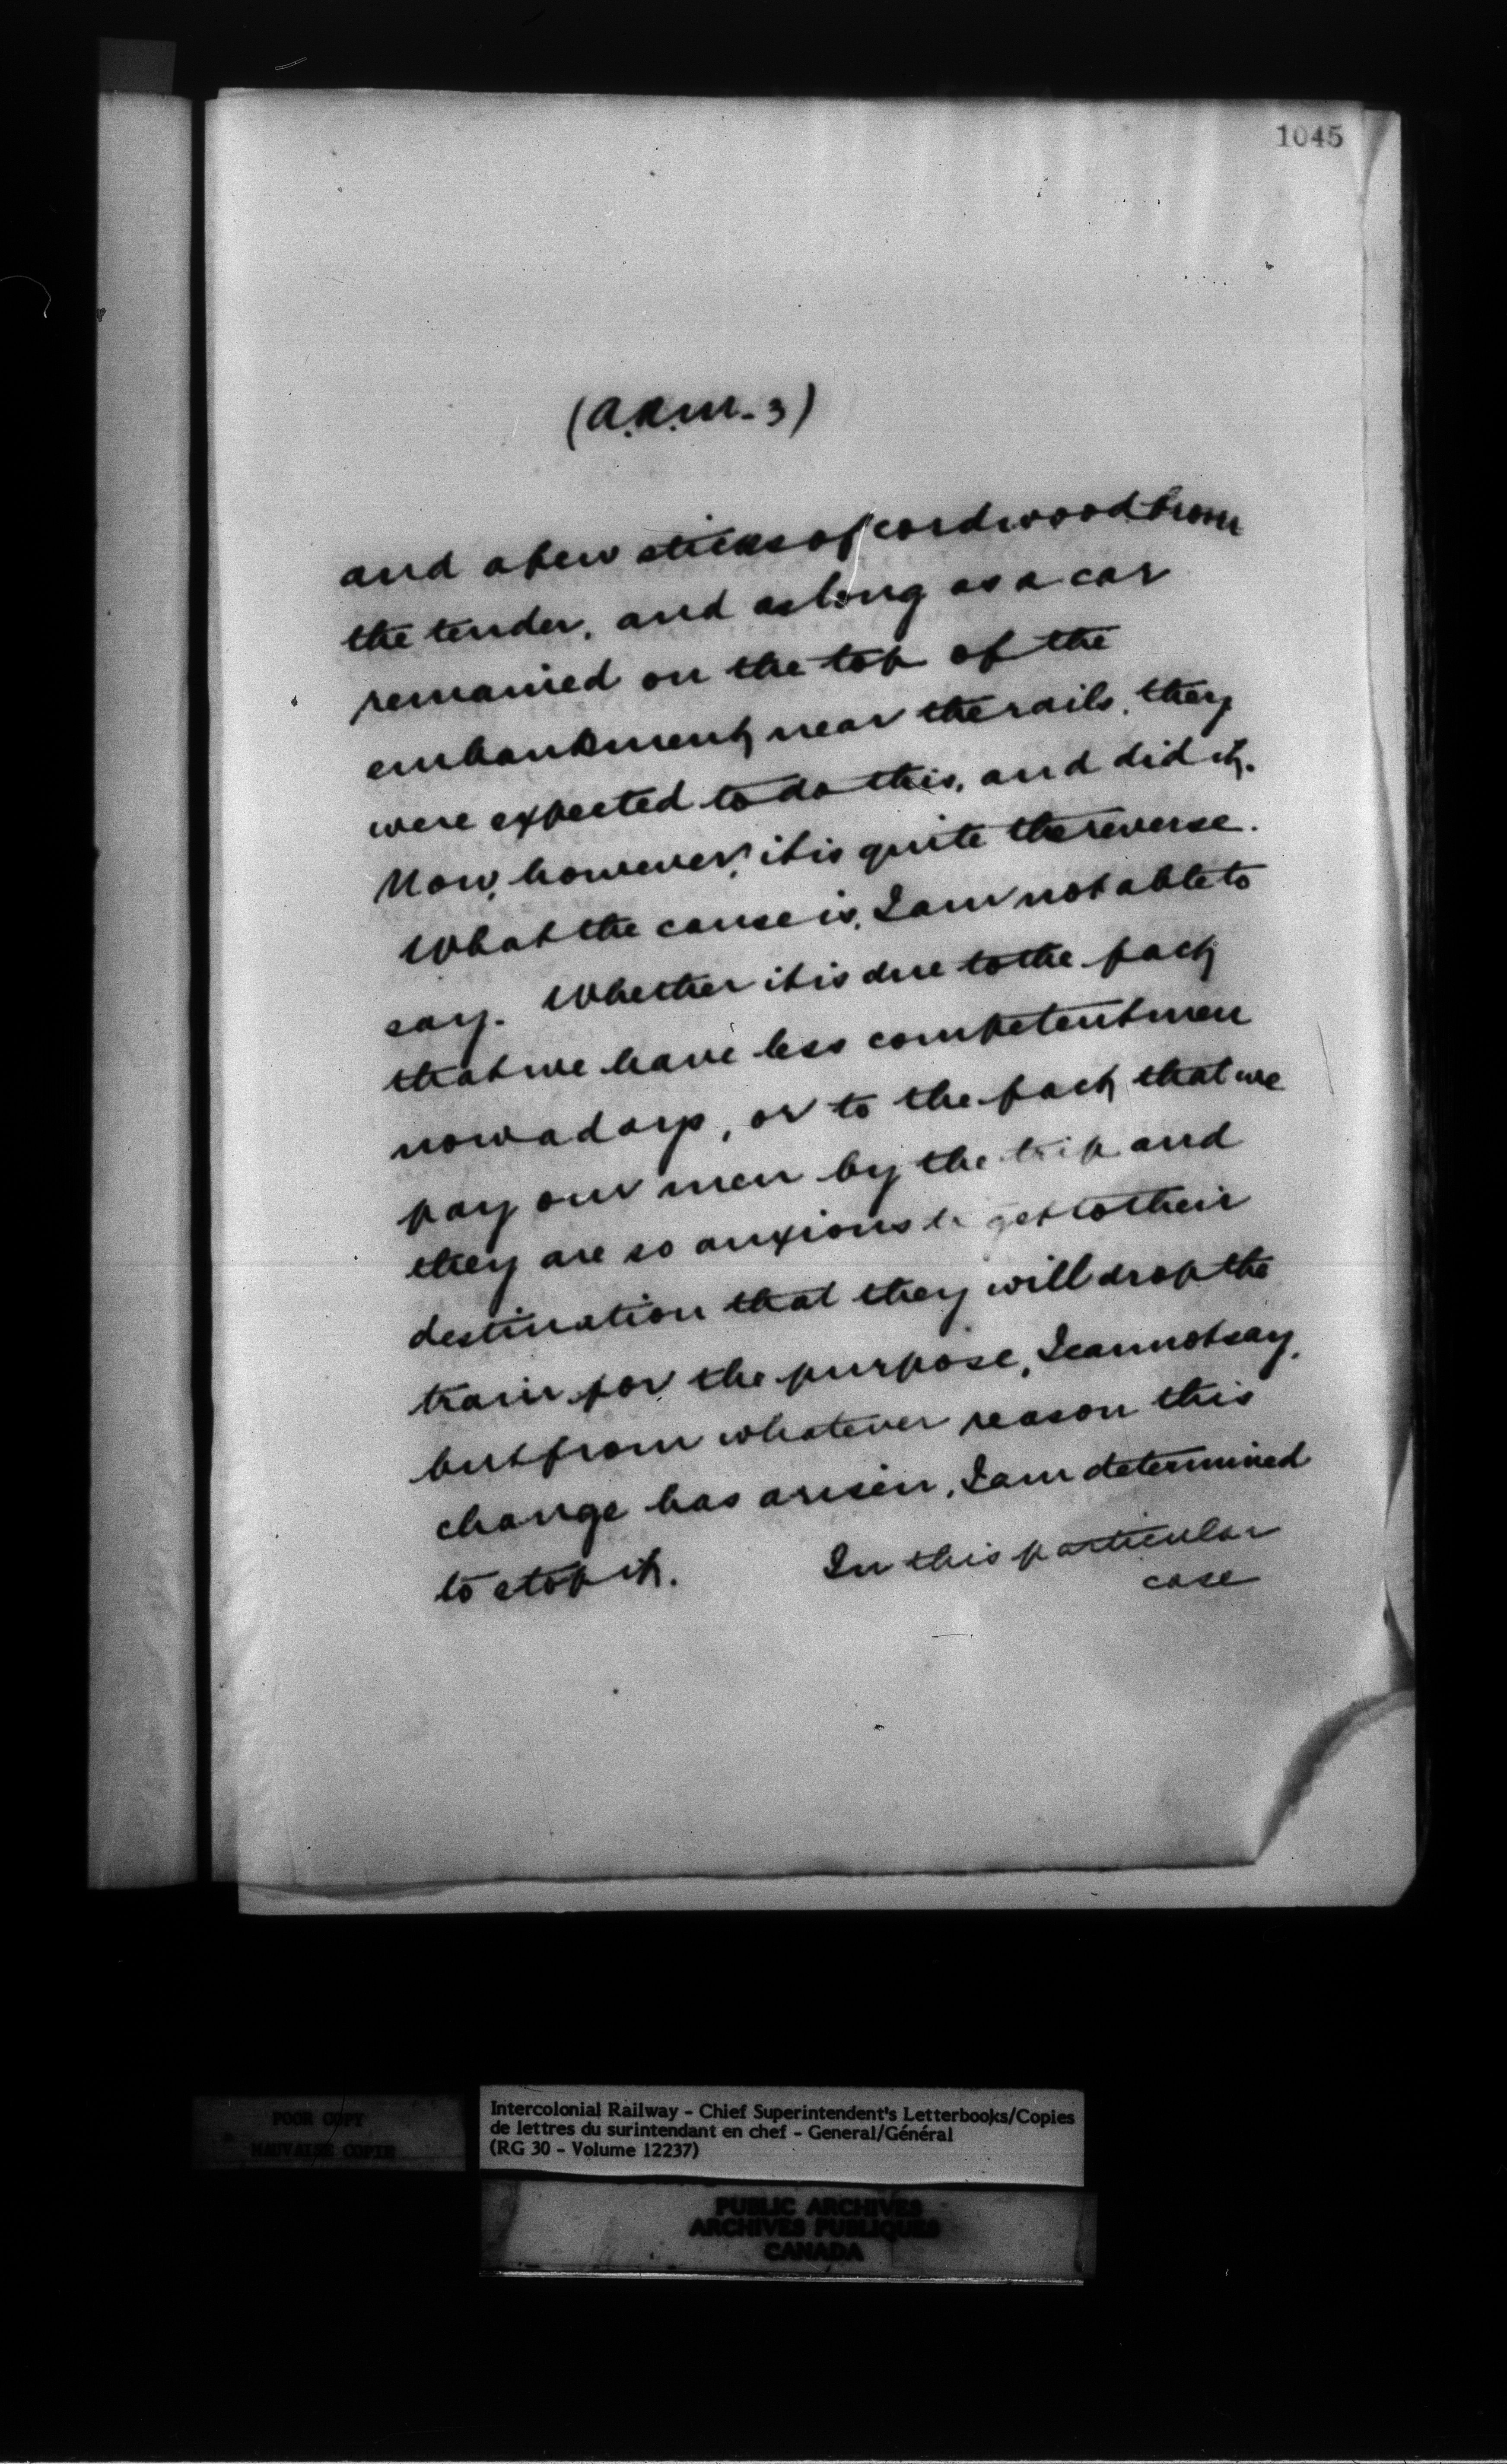 1045
(A.R.M. - 3)
and a few sticks of cordwood from
the tender, and as long as a car
remained on the top of the
embankment, near the rails, they
were expected to do this, and did it.
Now, however, it is quite the reverse.
What the cause is, I am not able to
say. Whether it is due to the fact
that we have less competent men
nowadays, or to the fact that we
pay our men by the trip and
they are so anxious to get to their
destination that they will drop the
train for the purpose, I cannot say,
but from whatever reason this
change has arisen, I am determined
to stop it. In this particular
case
POOR COPY
MAUVAISE COPIE
Intercolonial Railway - Chief Superintendent's Letterbooks/Copies
de lettres du surintendant en chef - General/Général
(RG 30 - Volume 12237)
PUBLIC ARCHIVES
ARCHIVES PUBLIQUES
CANADA